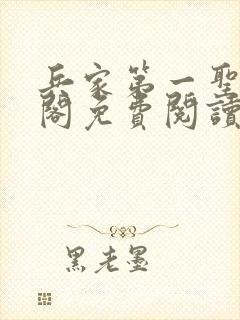 兵家第一聖
閣免費閱讀
黑老墨